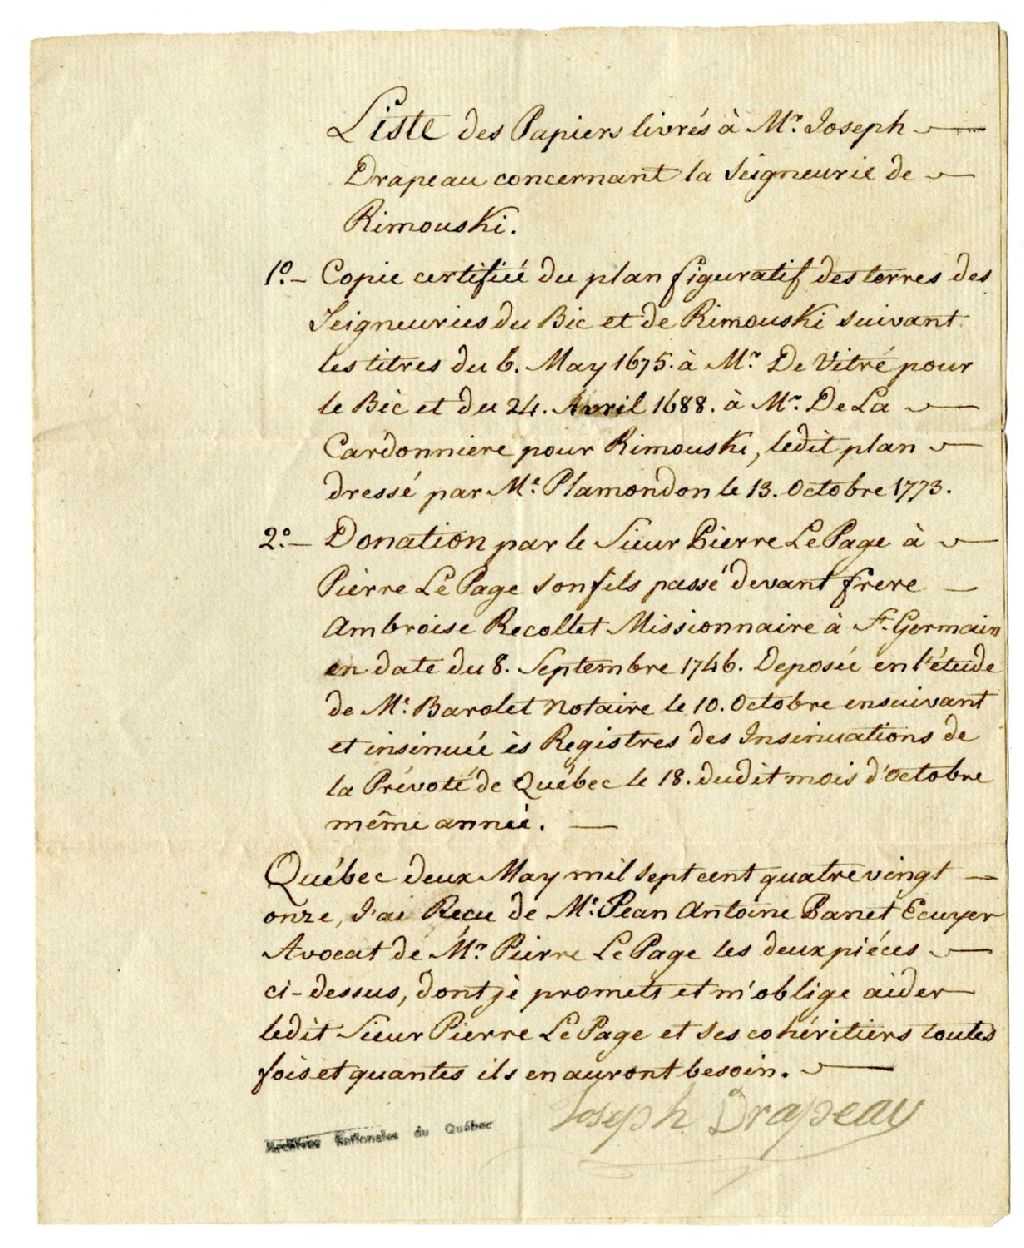 Liste des Papiers livrés à Mr. Joseph
Drapeau concernant la Seigneurie de
Rimouski.
1º.– Copie certifiée du plan figuratif des terres des
Seigneuries du Bic et de Rimouski suivant
les titres du 6. May 1675. à Mr. De Vitré pour
le Bic et du 24. Avril 1688. à Mr. De La
Cardonniere pour Rimouski, ledit plan
dressé par Mr. Plamondon le 13. Octobre 1773.
2º.– Donation par le Sieur Pierre LePage à
Pierre LePage son fils passé devant frere
Ambroise Recollet Missionnaire à St. Germain
en date du 8. Septembre 1746. Deposée en l'étude
de Mr. Barolet Notaire le 10. Octobre ensuivant
et insinuée ès Registres des Insinuations de
la Prévoté de Québec le 18. dudit mois d'Octobre
même année.
Québec deux May mil sept cent quatre vingt
onze, J'ai Reçu de Mr. Jean Antoine Panet Ecuyer
Avocat de Mr. Pierre LePage les deux piéces
ci-dessus, dont je promets et m'oblige aider
ledit Sieur Pierre LePage et ses cohéritiers toutes
fois et quantes ils en auront besoin.
Joseph Drapeau
Archives Nationales du Québec